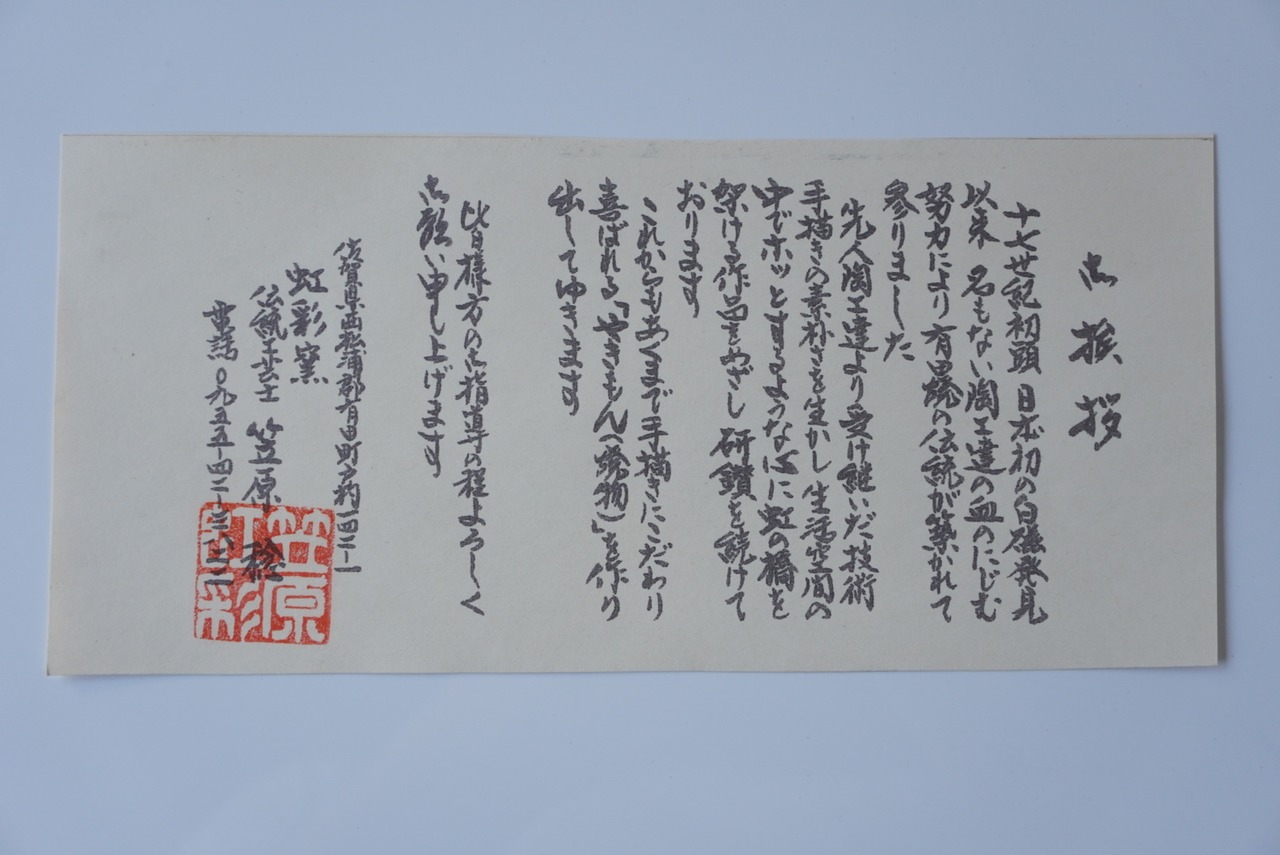 ご挨拶
十七世紀初頭 日本初の白磁発見
以来 名もない陶工達の血のにじむ
努力により 有田焼の伝統が築かれて
参りました
先人陶工達より受け継いだ技術
手描きの素朴さを生かし 生活空間の
中でホッとするような心に虹の橋を
架ける作品をめざし 研鑽を続けて
おります
これからもあくまで手描きにこだわり
喜ばれる「やきもん(焼物)」を作り
出してゆきます
皆様方のご指導の程よろしく
ご願い申し上げます
佐賀県西松浦郡有田町戸杓
虹彩窯
伝統工芸士 笠原 稔
電話 〇九五五-四二
笠原
虹彩